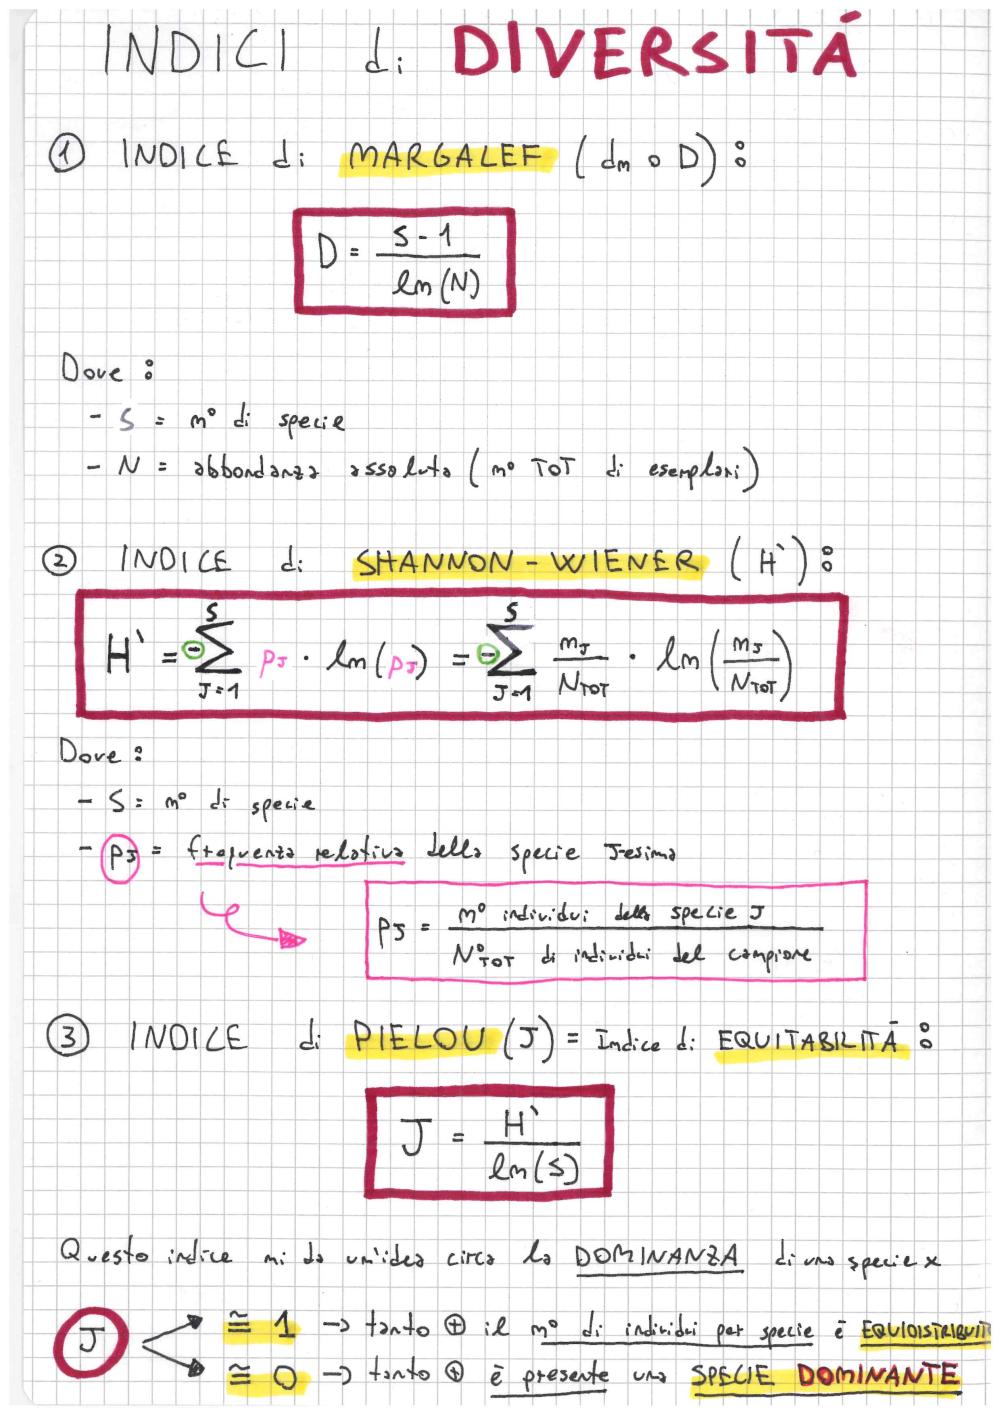 INDICI di DIVERSITÁ
① INDICE di MARGALEF (dm o D):
D = S - 1 / ln(N)
Dove:
- S = n° di specie
- N = abbondanza assoluta (n° TOT di esemplari)
② INDICE di SHANNON - WIENER (H`):
H` = - S Σ J=1 pJ · ln(pJ) = - S Σ J=1 nJ / NTOT · ln(nJ / NTOT)
Dove:
- S = n° di specie
- pJ = frequenza relativa della specie J-esima
pJ = n° individui della specie J / N°TOT di individui del campione
③ INDICE di PIELOU (J) = Indice di EQUITABILITÁ:
J = H` / ln(S)
Questo indice mi da un'idea circa la DOMINANZA di una specie x
J
≅ 1 → tanto ⊕ il n° di individui per specie é EQUIDISTRIBUIT
≅ 0 → tanto ⊕ é presente una SPECIE DOMINANTE